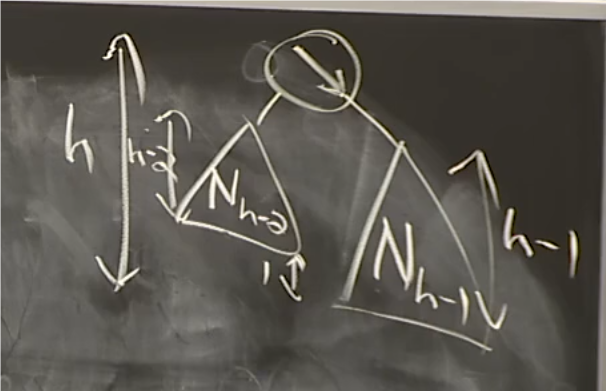 h
h-2
N h-2
1
N h-1
h-1